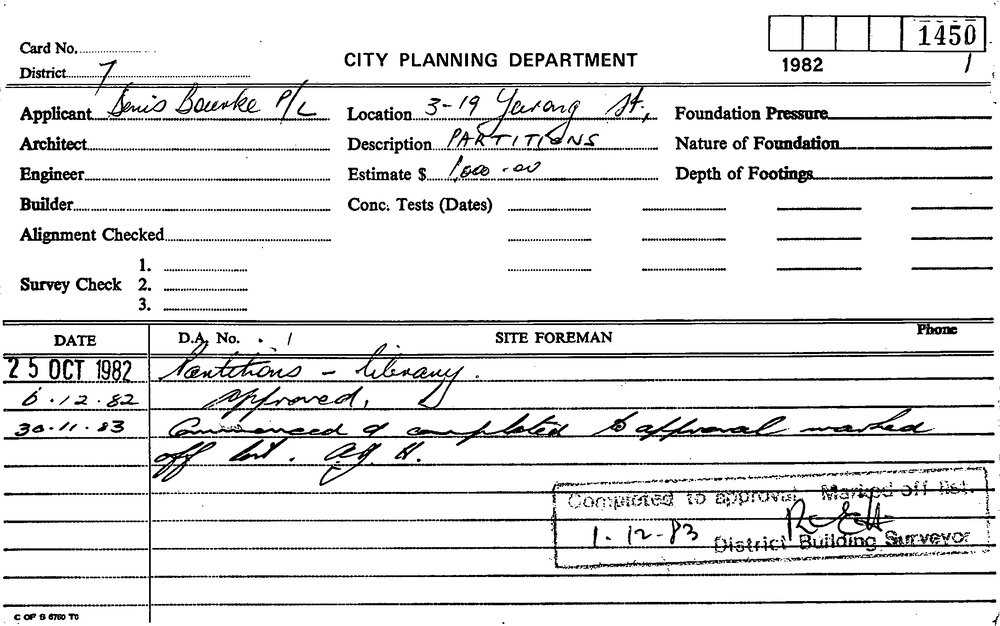 Card No.
1450
CITY PLANNING DEPARTMENT
1982 1
District 7
Applicant Denis Bourke P/L Location 3-19 Yurong St, Foundation Pressure
Architect Description PARTITIONS Nature of Foundation
Engineer Estimate $ 1,000.00 Depth of Footings
Builder Conc. Tests (Dates)
Alignment Checked
1.
Survey Check 2.
3.
DATE D.A. No. SITE FOREMAN Phone
25 OCT 1982 Partitions - library.
6.12.82 approved.
30.11.83 Commenced & completed to approval marked
off list. A.J. H.
Completed to approval. Marked off list.
1.12.83
District Building Surveyor
C OF S 6760 T0